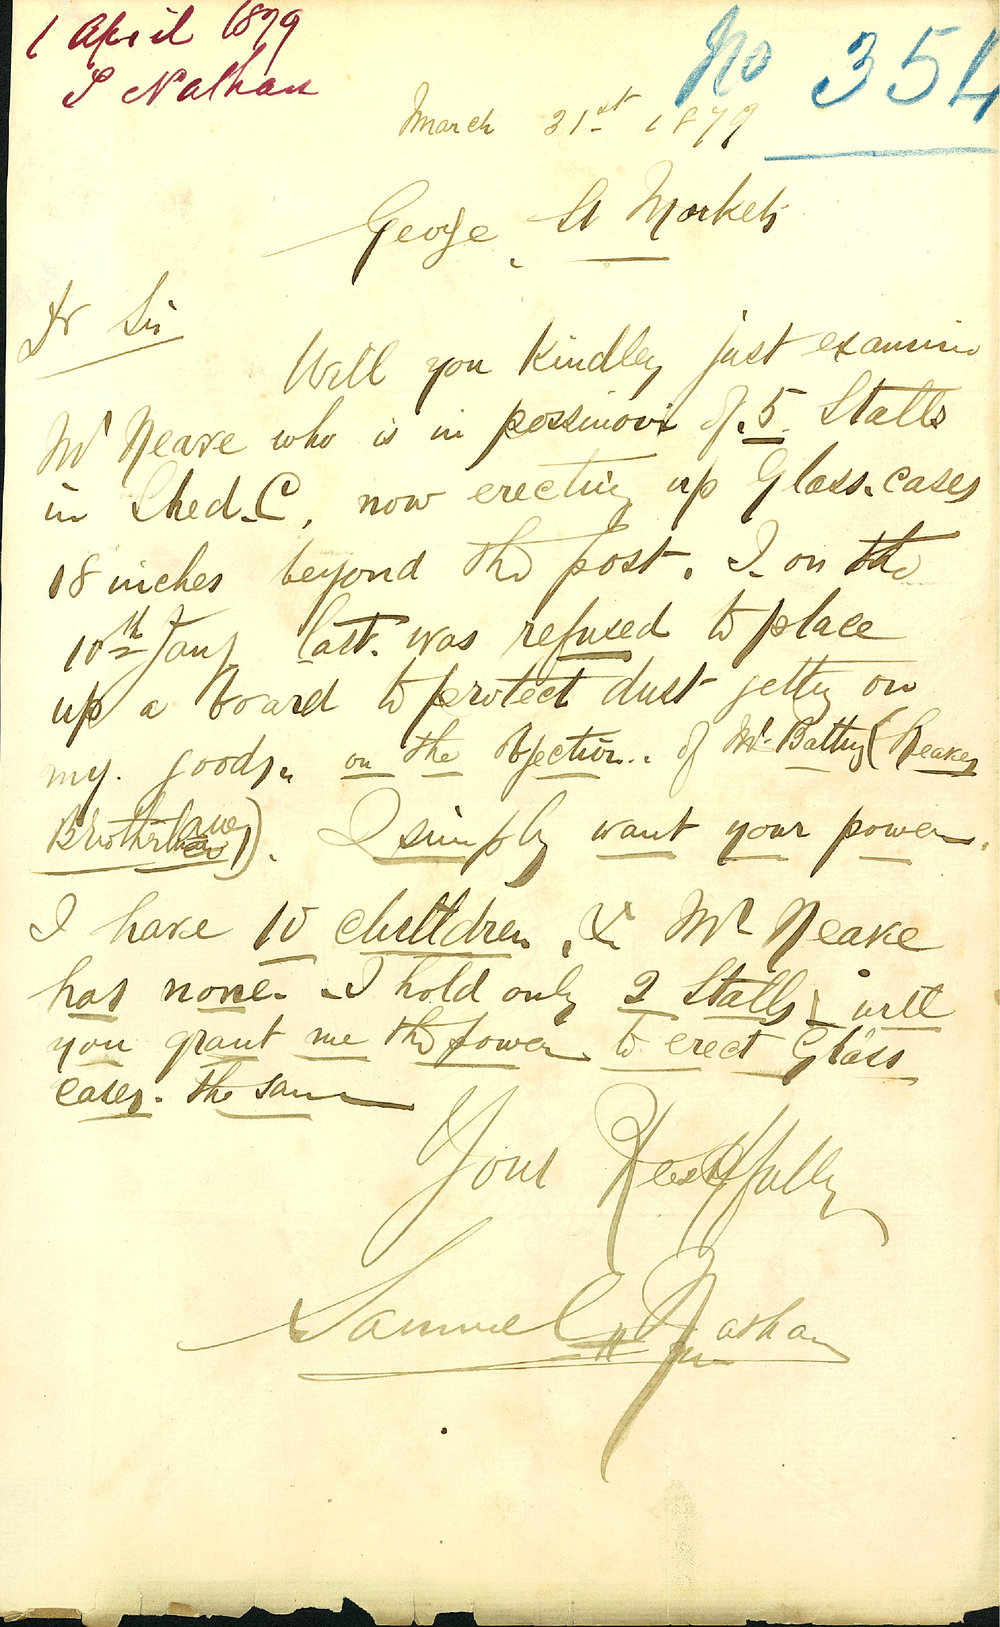 1 April 1879
S Nathan
No 354
March 31st 1879
George St Markets
Dr Sir
Will you Kindley just examine
Mr Neave who is in possession of .5. Stalls
in Shed. C, now erecting up Glass. cases
18 inches beyond the post. I on the
10th Jany last. was refused to place
up a board to protect dust getty on
my. goods. on the Objection.. of Mr Battry (Neaves
Brotherlaw). I simply want your power.
I have 10 children, & Mr Neave
has none. I hold only 2 Stalls, will
you grant me the power to erect Glass
cases. the same
Yours Respectfully
Samuel H Nathan
Jun